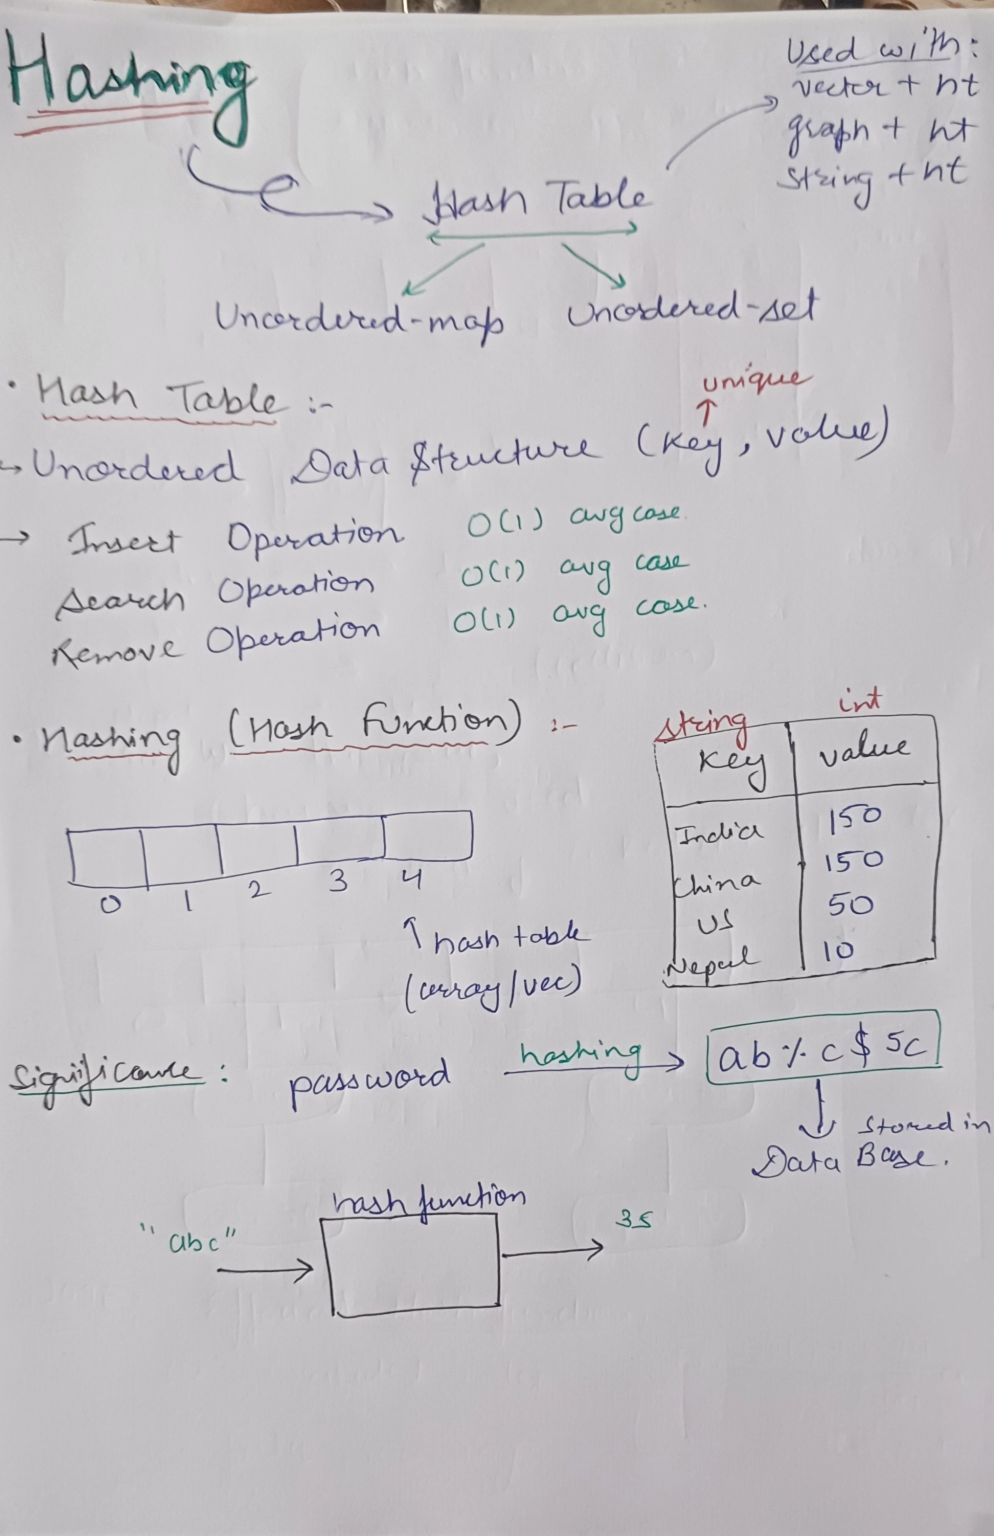 Hashing
Used with:
vector + ht
graph + ht
string + ht
Hash Table
Unordered-map
Unordered-set
unique
• Hash Table :-
→ Unordered Data Structure (Key, value)
→ Insert Operation O(1) avg case.
Search Operation O(1) avg case
Remove Operation O(1) avg case.
• Hashing (Hash Function) :-
string int
Key value
India 150
China 150
US 50
Nepal 10
0 1 2 3 4
↑ hash table
(array/vec)
Significance : password hashing → ab % c $ 5c
Stored in
Data Base.
hash function
"abc" → → 35